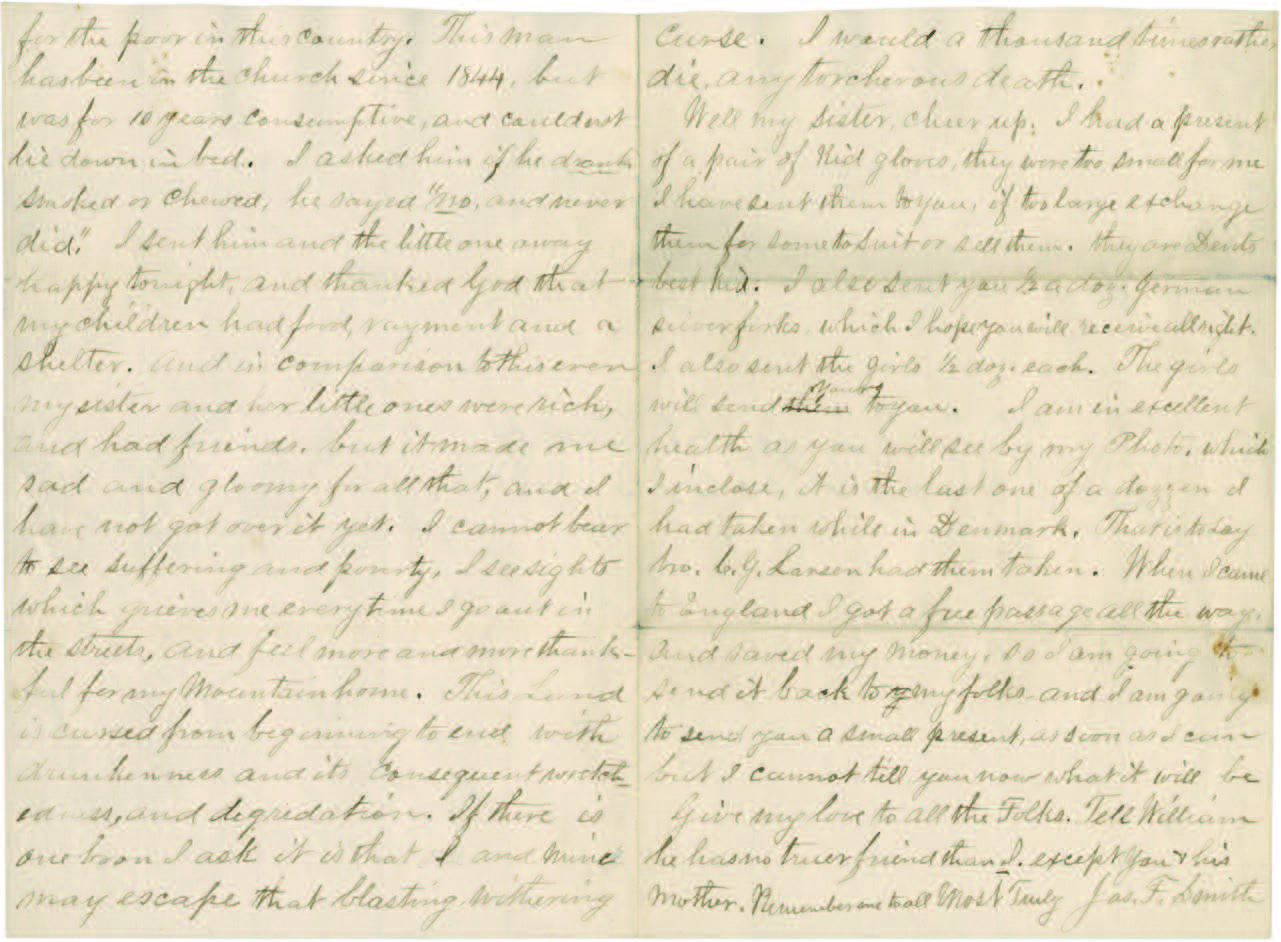 for the poor in this country. This man
has been in the church since 1844, but
was for 10 years consumptive, and could not
lie down in bed. I asked him if he drank
smoked or chewed, he sayed "no, and never
did." I sent him and the little one away
happy tonight, and thanked God that
my children had food, rayment and a
shelter. And in comparison to this even
my sister and her little ones were rich,
and had friends. but it made me
sad and gloomy for all that, and I
have not got over it yet. I cannot bear
to see suffering and poverty, I see sights
which grieves me every time I go out in
the streets, and feel more and more thank-
ful for my Mountain home. This Land
is cursed from beginning to end with
drunkenness and its consequent wretch
edness, and degredation. If there is
one boon I ask it is that I and mine
may escape that blasting, withering
curse. I would a thousand times rather
die, any torcherous death.
Well my sister, cheer up. I had a present
of a pair of Kid gloves, they were too small for me
I have sent them to you, if too large exchange
them for some to suit or sell them. they are Dents
best kid. I also sent you ½ a doz. German
silver forks, which I hope you will receive all right.
I also sent the girls ½ doz. each. The girls
will send them yours to you. I am in excellent
health as you will see by my Photo. which
I inclose, it is the last one of a dozzen I
had taken while in Denmark. That is to say
bro. C. G. Larsen had them taken. When I came
to England I got a free passage all the way.
and saved my money, so I am going to
send it back to my folks and I am going
to send you a small present, as soon as I can
but I cannot tell you now what it will be
Give my love to all the Folks. Tell William
he has no truer friend than I. except you & his
Mother. Remember me to all Most Truly Jos. F. Smith